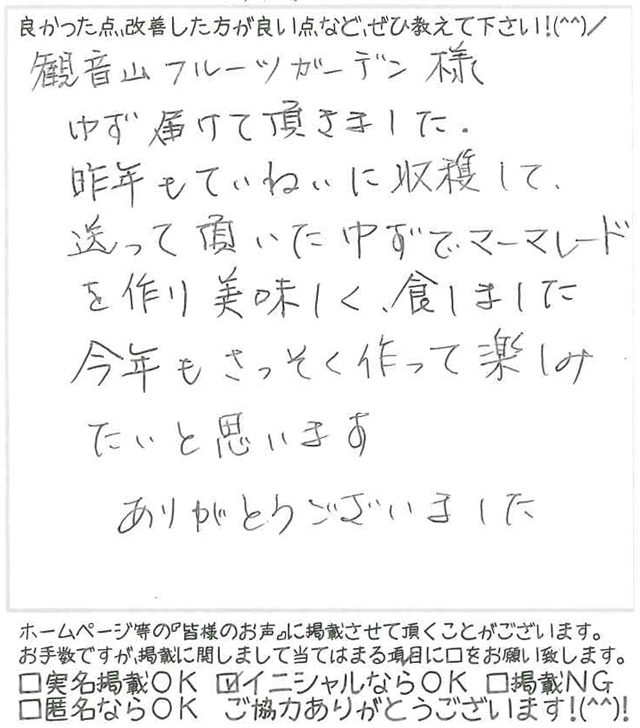 良かった点、改善した方が良い点など、ぜひ教えて下さい!(^^)/
観音山フルーツガーデン 様
ゆず届けて頂きました。
昨年もていねいに収穫して、
送って頂いたゆずでマーマレード
を作り美味しく、食しました
今年もさっそく作って楽しみ
たいと思います
ありがとうございました
ホームページ等の『皆様のお声』に掲載させて頂くことがございます。
お手数ですが、掲載に関しまして当てはまる項目に☐をお願い致します。
☐実名掲載OK ☑イニシャルならOK ☐掲載NG
☐匿名ならOK ご協力ありがとうございます!(^^)!